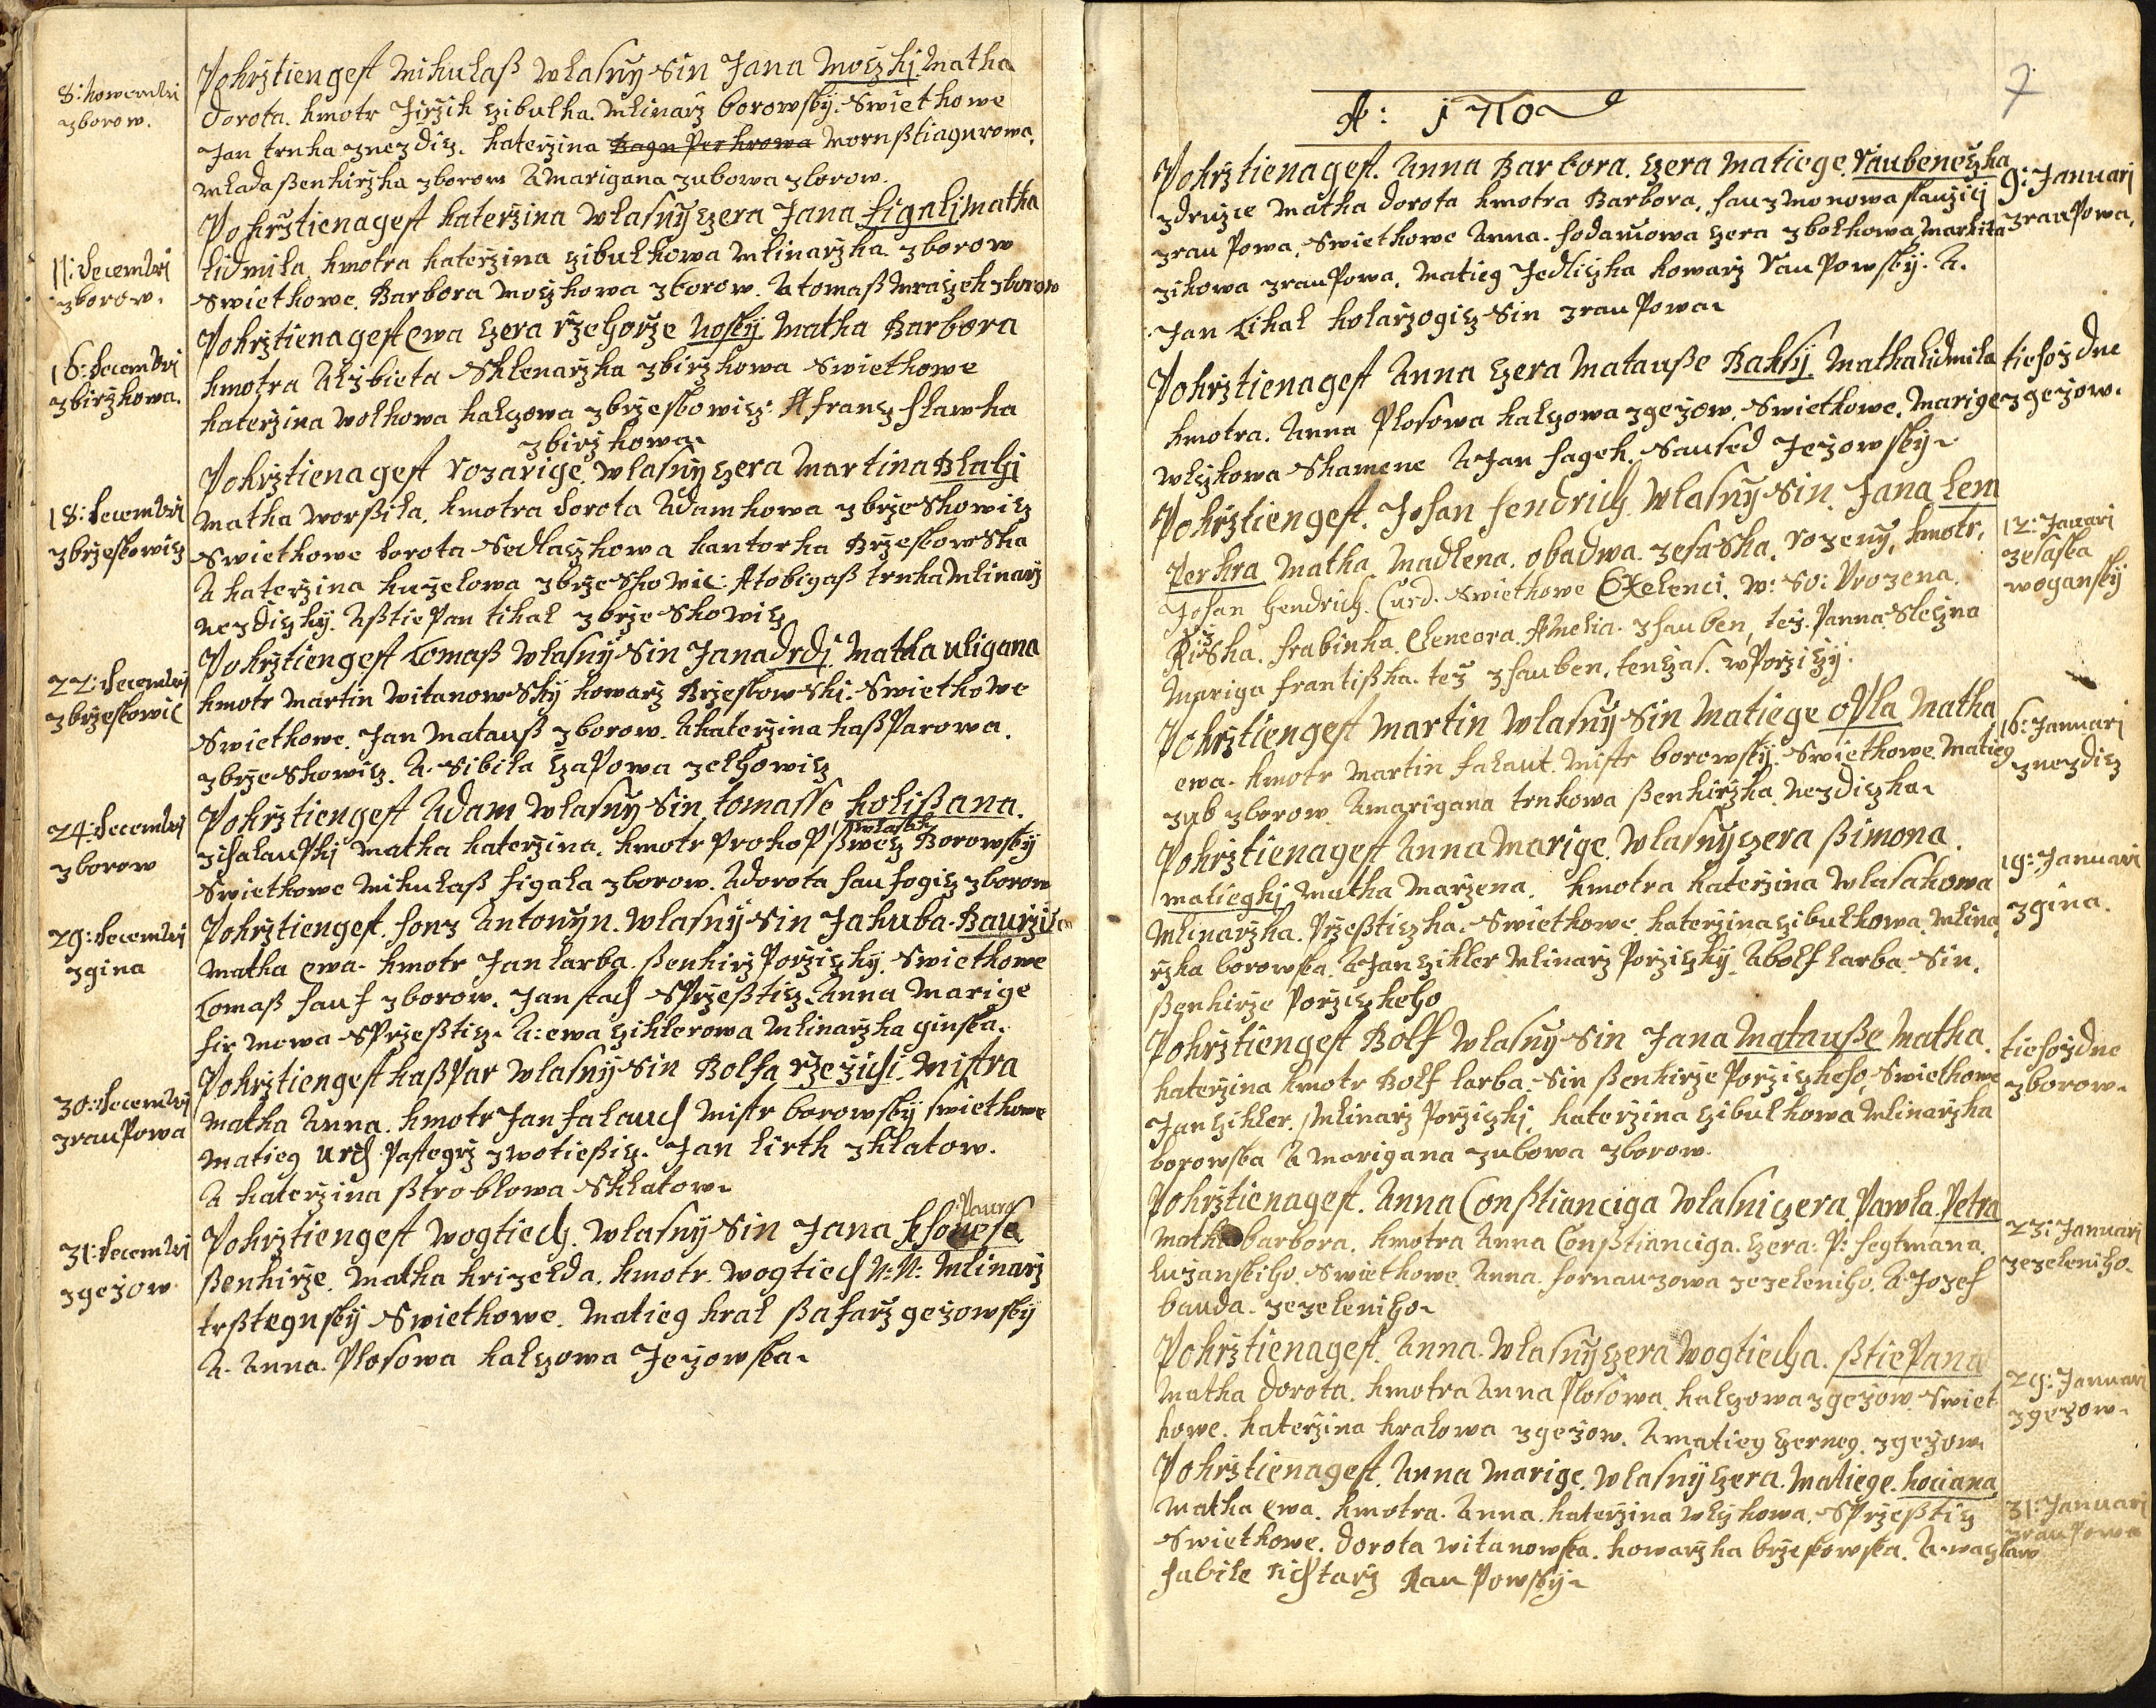 8: Nowembri
zborow.
Pokrztiengest Mikulaß wlasnÿ Sin Jana Moczkj Matka
dorota. kmotr Jirzik czibulka. Mlinarz borowskÿ. Swietkowe
Jan trnka znezdicz. katerzina Bagn Perkrowa Mornßtiagnrowa.
Mlada ßenkirzka zborow A Marigana zubowa zborow.
11: decembri
zborow.
Pokrztienagest katerzina wlasnÿ czera Jana figalj Matka
lidmila kmotra katerzina czibulkowa Mlinarzka zborow
Swietkowe. Barbora Moczkowa zborow. A tomaß Mraczek zborow
16: decembri
zbirzkowa.
Pokrztienagest ewa czera rzehorze Noskÿ Matka Barbora
kmotra Alzbieta Sklenarzka zbirzkowa Swietkowe
katerzina wolkowa kalczowa zbrzeskowicz: A francz slawka
zbirzkowa
18: decembri
zbrzeskowicz
Pokrztienagest rozarige. wlasnÿ czera Martina Blahj
Matka worßila. kmotra dorota Adamkowa zbrzeskowicz
Swietkowe dorota Sedlaczkowa kantorka Brzeskowska
A katerzina kuzelowa zbrzeskowic: A tobigaß trnka Mlinarz
Nezdiczkÿ. A ßtiepan tikal zbrzeskowicz
22: decembrj
zbrzeskowic
Pokrztiengest tomaß wlasnÿ Sin Jana drdj Matka uligana
kmotr Martin witanowskÿ kowarz Brzeskowski. Swietkowe
Swietkowe. Jan Matauß zborow. A katerzina kaßParowa.
zbrzeskowicz. A. Sibila czapowa zelhowicz
24: decembrj
zborow
Pokrztiengest Adam wlasnÿ Sin tomasse kolißana.
z chalaupkj Matka katerzina. kmotr Prokop wlasak ßwecz Borowskÿ
Swietkowe Mikulaß figala zborow. A dorota faufogicz zborow
29: decembrj
zgina
Pokrztiengest. fonz Antonÿn. wlasnÿ Sin Jakuba. Baurzila
Matka ewa. kmotr Jan karba. ßenkirz Porziczkÿ. Swietkowe
tomaß fauf zborow. Jan stach SPrzeßticz. Anna Marige
firmowa SPrzeßticz. A: ewa cziklerowa Mlinarzka ginska.
30: decembrj
zraupowa
Pokrztiengest kaßPar wlasnÿ Sin Bolfa rzezichi. Mistra
Matka Anna. kmotr Jan falauch Mistr borowskÿ swietkowe
Matieg urch Pastegrz zwotießicz. Jan lirth zklatow.
A katerzina ßtroblowa Sklatow
31: decembrj
zgezow
Pokrztiengest wogtiech. wlasnÿ Sin Jana
ßenkirze. Matka krizelda. kmotr. wogtiech N: N: Mlinarz
trßtegnskÿ Swietkowe. Matieg kral ßafarz gezowskÿ
A. Anna. Plosowa kalczowa Jezowska
7
A: 1710
9: Januarj
zraupowa.
Pokrztienagest. Anna Barbora. czera Matiege. raubeneczka
zdruzce Matka dorota kmotra Barbora. fauzmonowa slauzicj
zraupowa. Swietkowe Anna. fodamowa czera zbolkowa Markita
zikowa zraupowa. Matieg Jedliczka kowarz raupowskÿ. A.
Jan tikal kolarzogicz Sin zraupowa
tiehoz dne
zgezow.
Pokrztienagest Anna czera Matauße Baksÿ. Matka lidmila
kmotra. Anna Plosowa kalczowa zgezow. Swietkowe. Marige
wlczkowa Skamene A Jan fagek. Saused Jezowskÿ
12: Januari
zehaska
woganskÿ
Pokrztiengest. Johan hendrich wlasnÿ Sin. Jana lem
Perkra Matka Madlena. obadwa. zehaska. rozenÿ. kmotr.
Johan hendrich. Curd. Swietkowe Excelenci. w: So: Urozena.
Rizska. hrabinka. Eleneora. Amelia. zhauben, tez. Panna Slecna
Mariga frantißka. tez zhauben. tenczas. wPorziczÿ.
16: Januarj
znezdicz
Pokrztiengest Martin wlasnÿ Sin Matiege oPla Matka
ewa. kmotr Martin falaut. Mistr borowskÿ. Swietkowe Matieg
zub zborow. A marigana trnkowa ßenkirzka. Nezdiczka
19: Januari
zgina.
Pokrztienagest Anna Marige. wlasnÿ czera ßimona.
Matiegkj Matka Marzena. kmotra katerzina wlasakowa
Mlinarzka. Przeßticzka. Swietkowe. katerzina czibulkowa. Mlina
rzka borowska. A Jan czikler Mlinarz Porziczkÿ. A bolf karba. Sin.
ßenkirze Porziczkeho
tiehoz dne
zborow.
Pokrztiengest Bolf wlasnÿ Sin Jana Matauße Matka.
katerzina kmotr Bolf karba. Sin ßenkirze Porziczkeho. Swietkowe
Jan czikler. Mlinarz Porziczkj. katerzina czibulkowa Mlinarzka
borowska A Marigana zubowa zborow.
23: Januari
zezeleniho.
Pokrztienagest. Anna Conßtianciga wlasni czera. Pawla. Petra
Matka barbora. kmotra Anna Conßtianciga. czera: P: hegtmana.
luzanskiho. Swietkowe. Anna. fornauzowa zezeleniho. A Jozef
bauda. zezeleniho
29: Januari
zgezow
Pokrztienagest. Anna. wlasnÿ czera Wogtiecha. ßtiePana
Matka dorota. kmotra Anna Plosowa kalczowa zgezow Swiet
kowe. katerzina kralowa zgezow. A matieg czerneg. zgezow
31: Januarj
zraupowa
Pokrztienagest. Anna Marige. wlasnÿ czera. Matiege. kociana
Matka ewa. kmotra. Anna. katerzina wlczkowa. SPrzeßticz
Swietkowe. dorota witanowska. kowarzka brzeskowska. A. waczlaw
habile richtarz Raupowskÿ